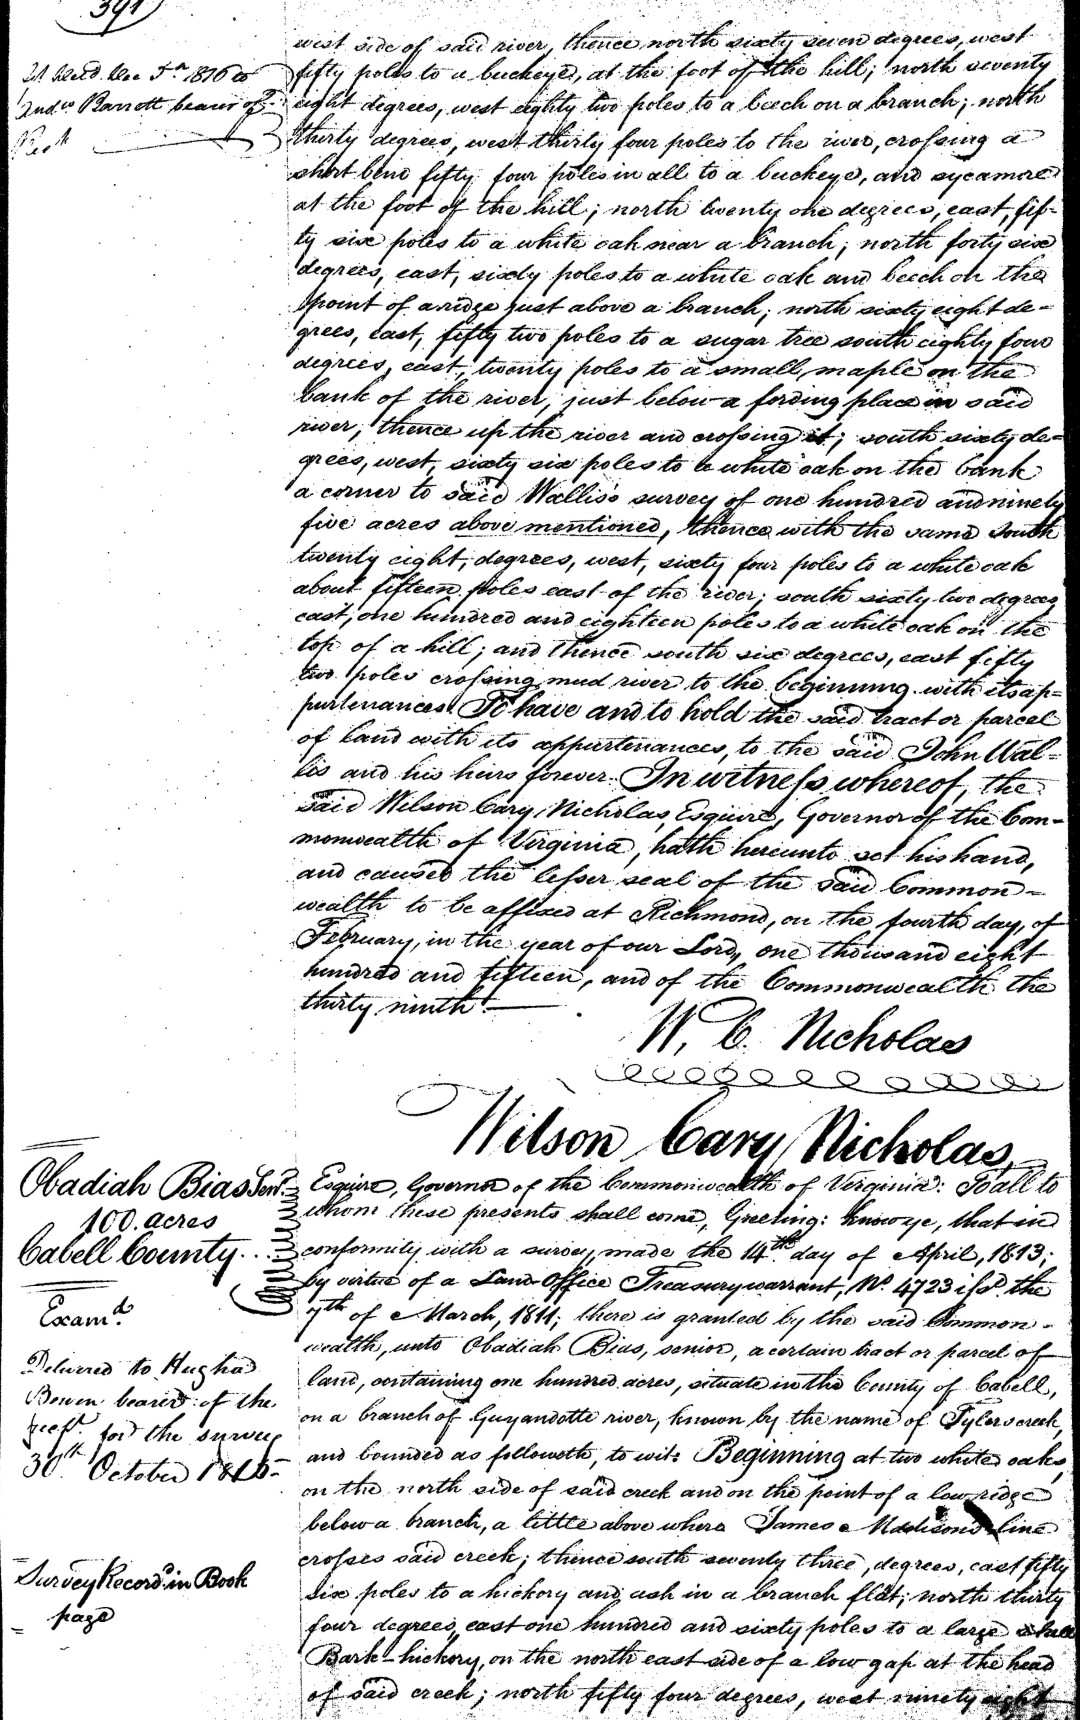 391
west side of said river, thence north sixty seven degrees, west
fifty poles to a buckeye, at the foot of the hill; north seventy
eight degrees, west eighty two poles to a beech on a branch; north
thirty degrees, west thirty four poles to the river, crossing a
short bend fifty four poles in all to a buckeye, and sycamore
at the foot of the hill; north twenty one degrees, east, fif-
ty six poles to a white oak near a branch; north forty six
degrees, east, sixty poles to a white oak and beech on the
point of a ridge just above a branch; north sixty eight de-
grees, east, fifty two poles to a sugar tree south eighty four
degrees, east, twenty poles to a small maple on the
bank of the river, just below a fording place in said
river; thence up the river and crossing it; south sixty de-
grees, west, sixty six poles to a white oak on the bank
a corner to said Wallis's survey of one hundred and ninety
five acres above mentioned, thence with the same south
twenty eight, degrees, west, sixty four poles to a white oak
about fifteen poles east of the river; south sixty two degrees
east, one hundred and eighteen poles to a white oak on the
top of a hill; and thence south six degrees, east fifty
two poles crossing mud river to the beginning with its ap-
purtenances. To have and to hold the said tract or parcel
of land with its appurtenances, to the said John Wal-
lis and his heirs forever. In witness whereof, the
said Wilson Cary Nicholas, Esquire, Governor of the Com-
monwealth of Virginia, hath hereunto set his hand,
and caused the lesser seal of the said Common-
wealth to be affixed at Richmond, on the fourth day, of
February, in the year of our Lord, one thousand eight
hundred and fifteen, and of the Commonwealth the
thirty ninth.
W. C. Nicholas
dec 5th 1816 to
Barrett bearer of
Obadiah Bias Senr.
100 acres
Cabell County
Examd.
Delivered to Hugh
Bowen bearer of the
rect. for the survey
30th October 1816
Survey Recordd. in Book
page
Wilson Cary Nicholas,
Esquire, Governor of the Commonwealth of Virginia: To all to
whom these presents shall come, Greeting: Know ye, that in
conformity with a survey, made the 14th day of April, 1813;
by virtue of a Land Office Treasury warrant, No. 4723 issd. the
7th of March, 1811; there is granted by the said Common-
wealth, unto Obadiah Bias, senior, a certain tract or parcel of
land, containing one hundred acres, situate in the County of Cabell,
on a branch of Guyandotte river, known by the name of Tylers creek,
and bounded as followeth, to wit: Beginning at two white oaks,
on the north side of said creek and on the point of a low ridge
below a branch, a little above where James Madison's line
crosses said creek; thence south seventy three, degrees, east fifty
six poles to a hickory and ash in a branch flat; north thirty
four degrees, east one hundred and sixty poles to a large shell
Bark-hickory, on the north east side of a low gap at the head
of said creek; north fifty four degrees, west ninety eight